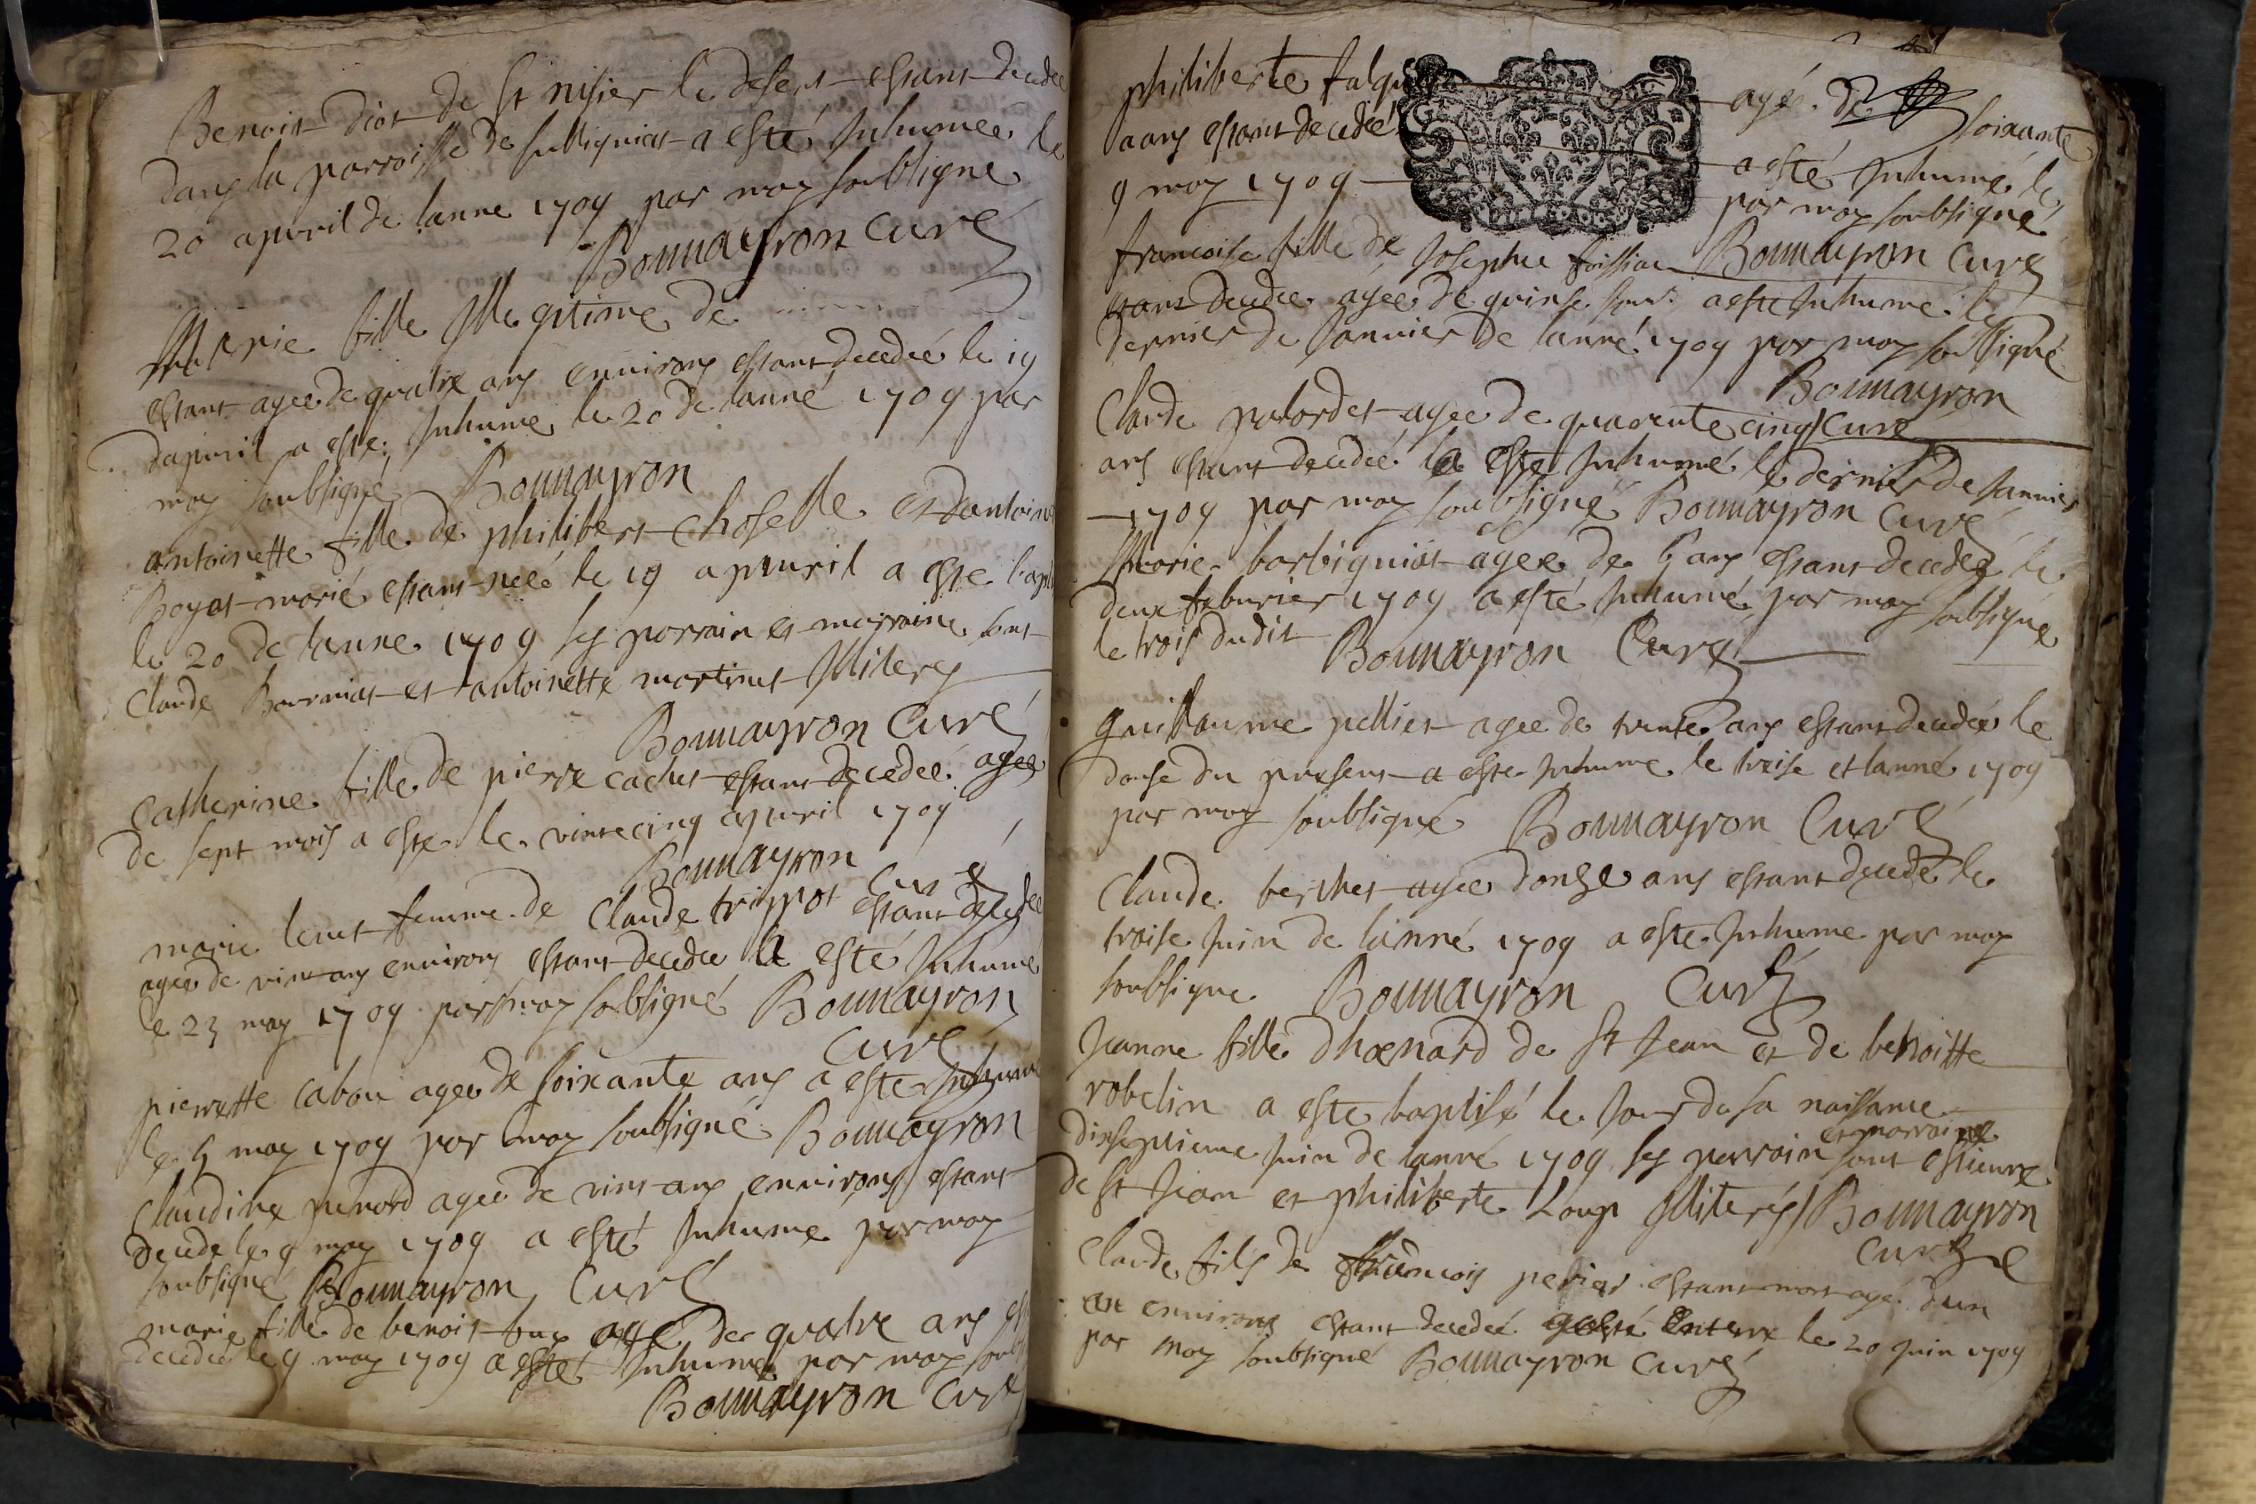 Benoist diot de St nisier le desert estant decedee
dans la parroisse de subligniat a esté Inhumée le
20 apvril de lanne 1709 par moy soubsigne
Bonnayron Curé
Marie fille Illegitime de
estant agee de quatre ans environs estant decedeé le 19
dapvril a este Inhumé le 20 de lanné 1709 par
moy soubsigné Bonnayron
antoinette fille de philibert choselle et dantoine
Boyat marié estant neé le 19 apvuril a este bapt
le 20 de lanne 1709 ses parrain et marraine sont
Claude et antoinette martinet Illiterés
Bonnayron Curé
Catherine fille de pierre cachet estant decedeé ageé
de sept mois a este le vinte cinq apvril 1709
Bonnayron Curé
marie femme de Claude trippot estant decedee
agee de vint ans environs estant decedee a esté Inhumé
le 23 may 1709 par moy soubsigné Bonnayron
Curé
pierrette cabou agee de soixante ans a este Inhumé
le 5 may 1709 par moy soubsigné Bonnayron
Claudine penard agee de vint ans environs estant
decede le 9 may 1709 a esté Inhumé par moy
soubsigné Bonnayron Curé
marie fille de benoist agé de quatre ans
decedeé le 9 may 1709 a esté Inhumé par moy
Bonnayron Curé
philiberte agé de soixante
ans estant decedeé a esté Inhumé le
9 may 1709 par moy soubsigné
francoise fille de Josephe Bonnayron Curé
estant decedee ageé de quinse a esté Inhumé le
dernier de Janvier de lanné 1709 par moy soubsigné
Bonnayron
Claude palordet agee de quarente cinq Curé
ans estant decedeé a este Inhumé le dernier de Janvier
1709 par moy soubsigné Bonnayron Curé
Marie barbigniat ageé de 5 ans estant decedeé le
deux feburier 1709 a esté Inhumé par moy soubsigné
le trois dudit Bonnayron Curé
guillaume pelliet agee de trente ans estant decedeé le
douse du present a este Inhumé le treise et lanné 1709
par moy soubsigné Bonnayron Curé
Claude berthet agee donze ans estant decedé le
treise Juin de lanné 1709 a este Inhumé par moy
soubsigne Bonnayron Curé
Jeanne fille dhœnard de St Jean et de benoitte
robelin a este baptisé le Jour de sa naissance
dixseptieme Juin de lanné 1709 ses parrain et marraine sont estienne
de St Jean et philiberte Loup Illiterés Bonnayron
Curé
Claude fils de francois perier estant mort agé dun
an environs estant decedeé a esté Enterré le 20 Juin 1709
par moy soubsigné Bonnayron Curé